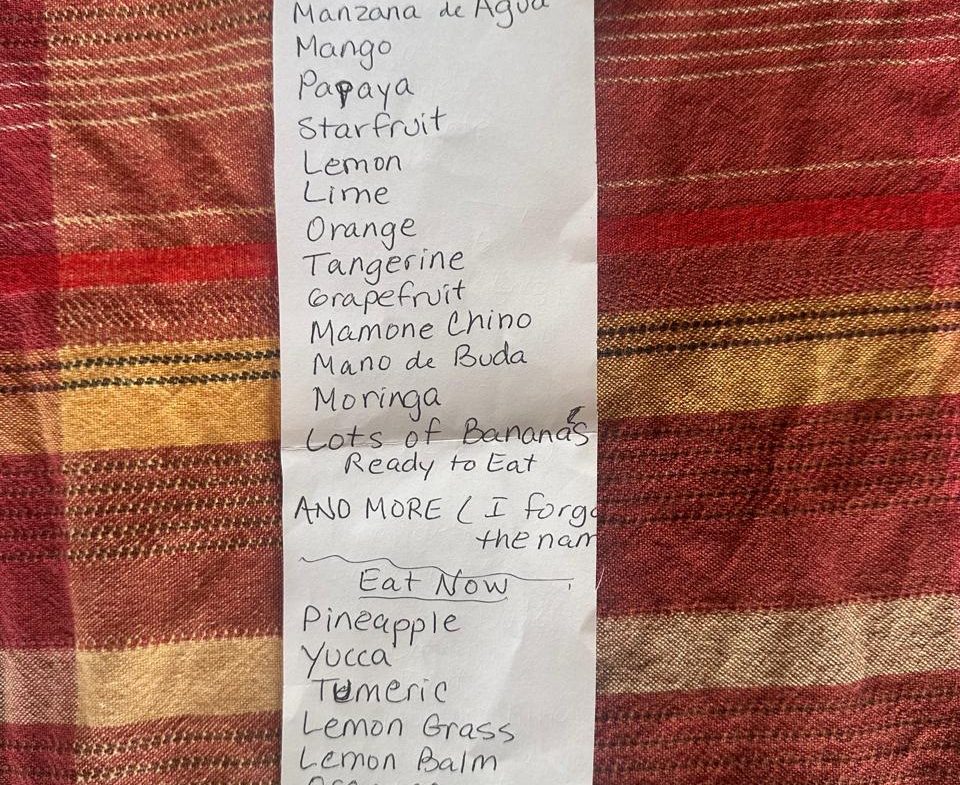 Manzana de Agua
Mango
Papaya
Starfruit
Lemon
Lime
Orange
Tangerine
Grapefruit
Mamone Chino
Mano de Buda
Moringa
Lots of Bananas
Ready to Eat
AND MORE ( I forgo
the nam
Eat Now
Pineapple
Yucca
Tumeric
Lemon Grass
Lemon Balm